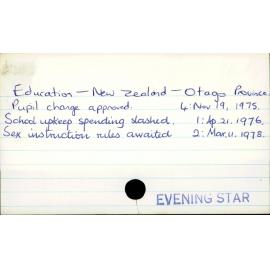 Education - New Zealand - Otago Province.
Pupil change approved. 4: Nov 19, 1975.
School upkeep spending slashed. 1: Ap. 21. 1976.
Sex instruction rules awaited 2: Mar. 11. 1978.
EVENING STAR